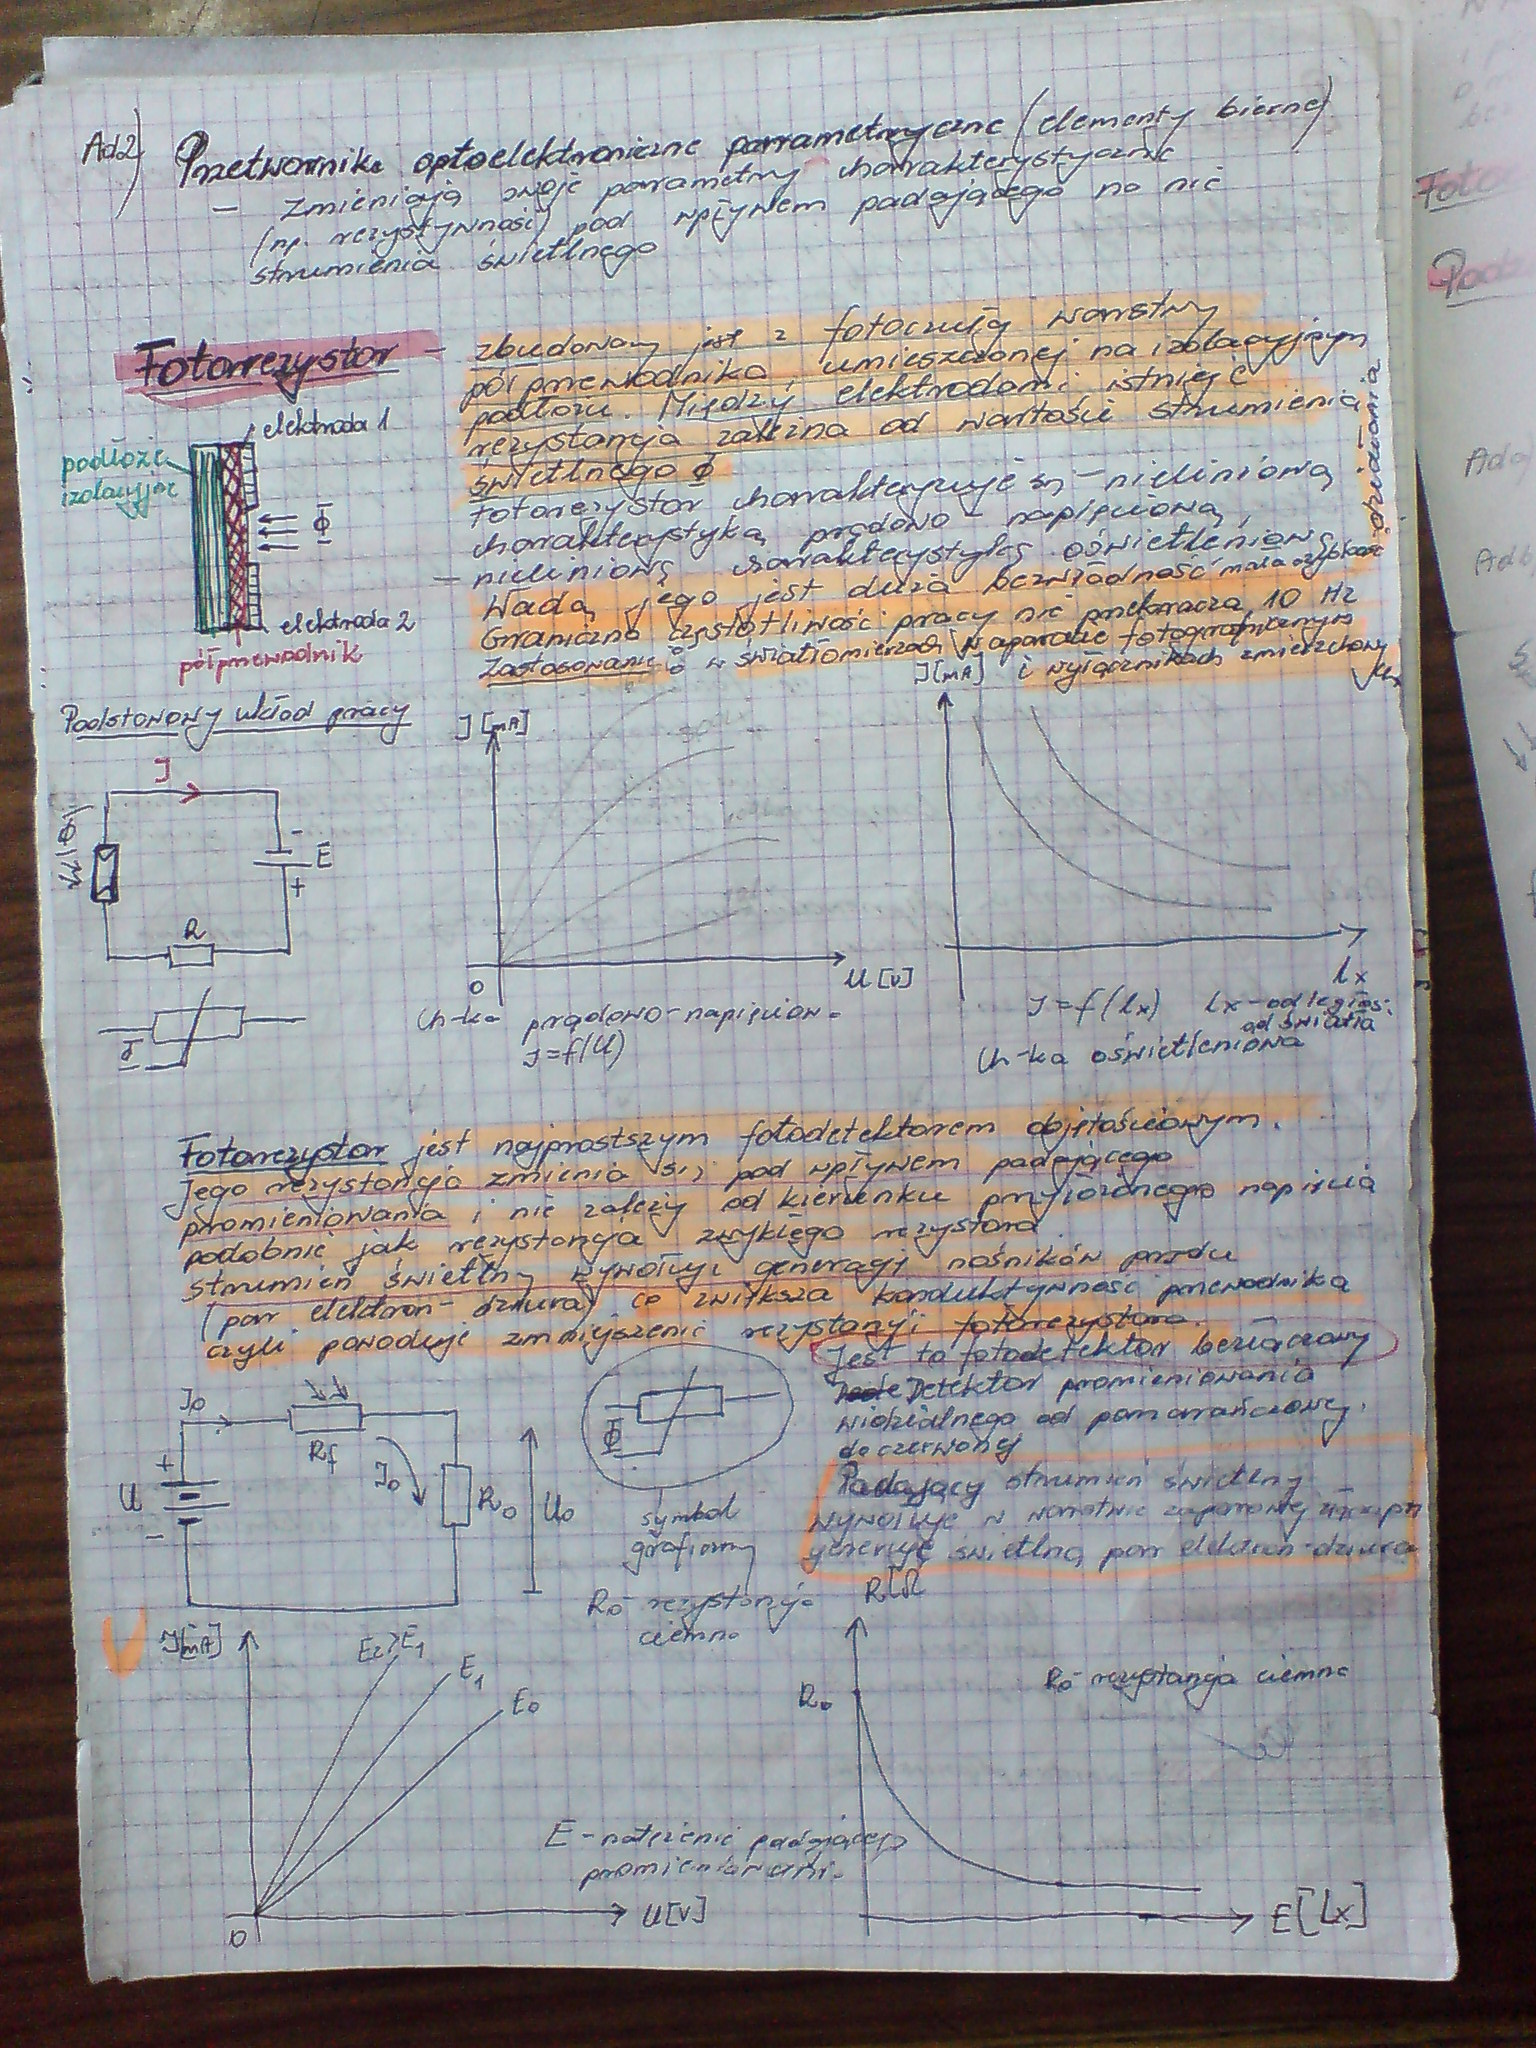 Ad2) Przetworniki optoelektroniczne parametryczne (elementy bierne)
- zmieniają swoje parametry charakterystyczne
(np. rezystywność) pod wpływem padającego na nie
strumienia świetlnego
Fotorezystor - zbudowany jest z fotoczułej warstwy
półprzewodnika, umieszczonej na izolacyjnym
podłożu. Między elektrodami istnieje
rezystancja zależna od wartości strumienia
świetlnego Φ
fotorezystor charakteryzuje się - nieliniową
charakterystyką prądowo-napięciową,
nieliniową charakterystyką oświetleniową
- Wadą jego jest duża bezwładność mała szybkość działania
Graniczna częstotliwość pracy nie przekracza 10 Hz
Zastosowanie: w światłomierzach w aparacie fotograficznym
i wyłącznikach zmierzchowych
elektroda 1
podłoże
izolacyjne
Φ
elektroda 2
półprzewodnik
Podstawowy układ pracy
I
Φ
-
E
+
R
Φ
I [mA]
0
U [V]
Ch-ka prądowo-napięciow.
I=f(U)
I [mA]
lx
I=f(lx) Lx-odległoś.
od światła
Ch-ka oświetleniowa
Fotorezystor jest najprostszym fotodetektorem objętościowym.
Jego rezystancja zmienia się pod wpływem padającego
promieniowania i nie zależy od kierunku przyłożonego napięcia
podobnie jak rezystancja zwykłego rezystora
Strumień świetlny wywołuje generację nośników prądu
(par elektron-dziura) co zwiększa konduktywność przewodnika
czyli powoduje zmniejszenie rezystancji fotorezystora.
Jest to fotodetektor bezzłączowy
Detektor promieniowania
widzialnego od pomarańczowej
do czerwonej
Padający strumień świetlny
wywołuje w warstwie zaporowej
generuje świetlną par elektron-dziura
I0
+
U
-
Rf
I0
R0
U0
Φ
symbol
graficzny
R0 - rezystancja
ciemna
I [mA]
E2>E1
E1
E0
0
U [V]
E - natężenie padającego
promieniowani.
R[Ω
R0
R0 - rezystancja ciemna
E [Lx]